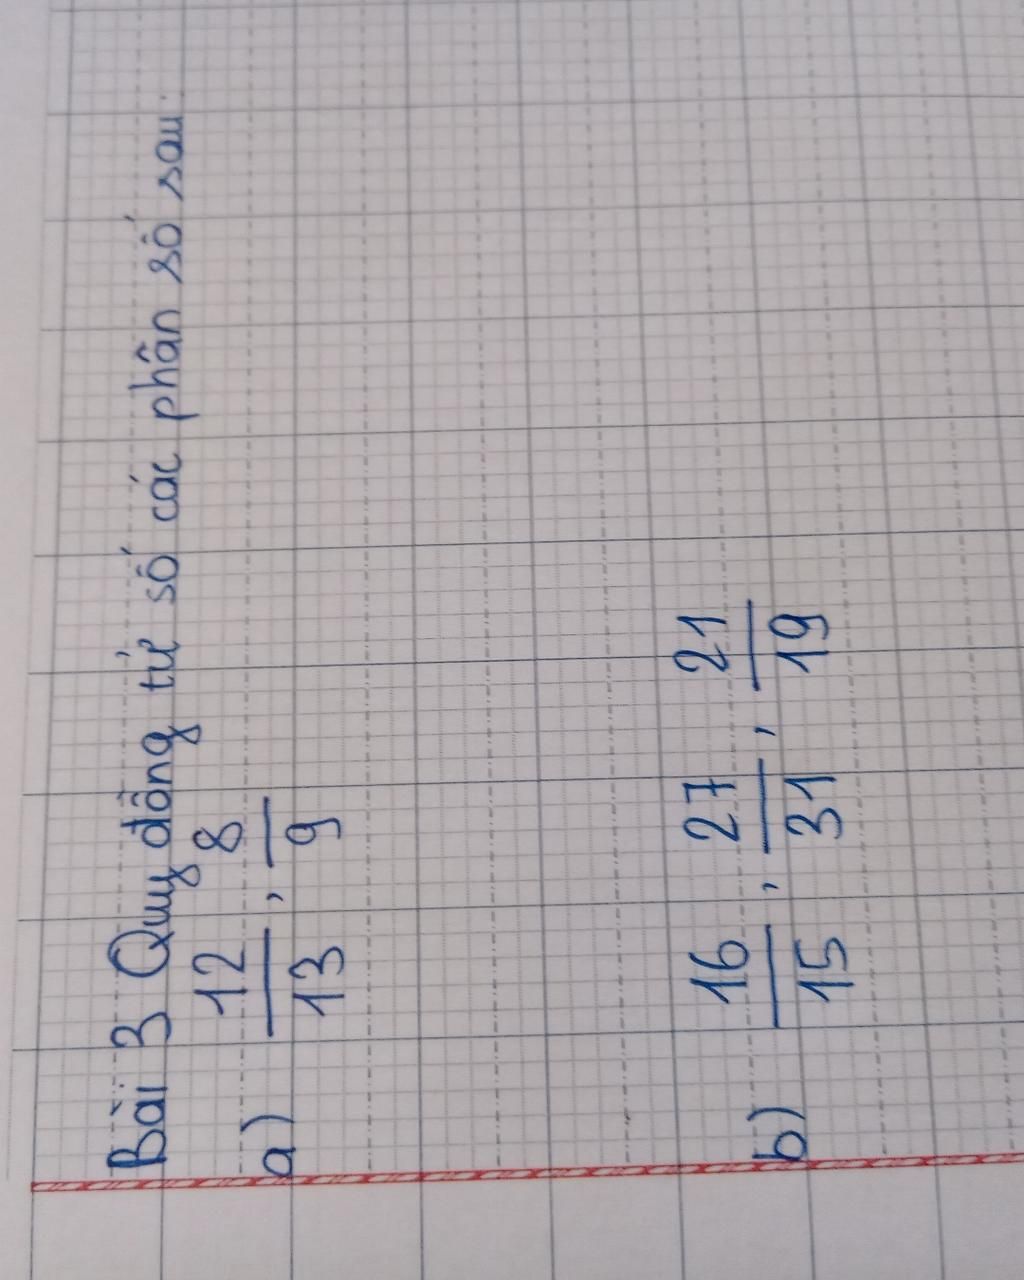 Bài 3 Quy đồng tử số các phân số sau.
a) 12/13 , 8/9
b) 16/15 , 27/31 , 21/19